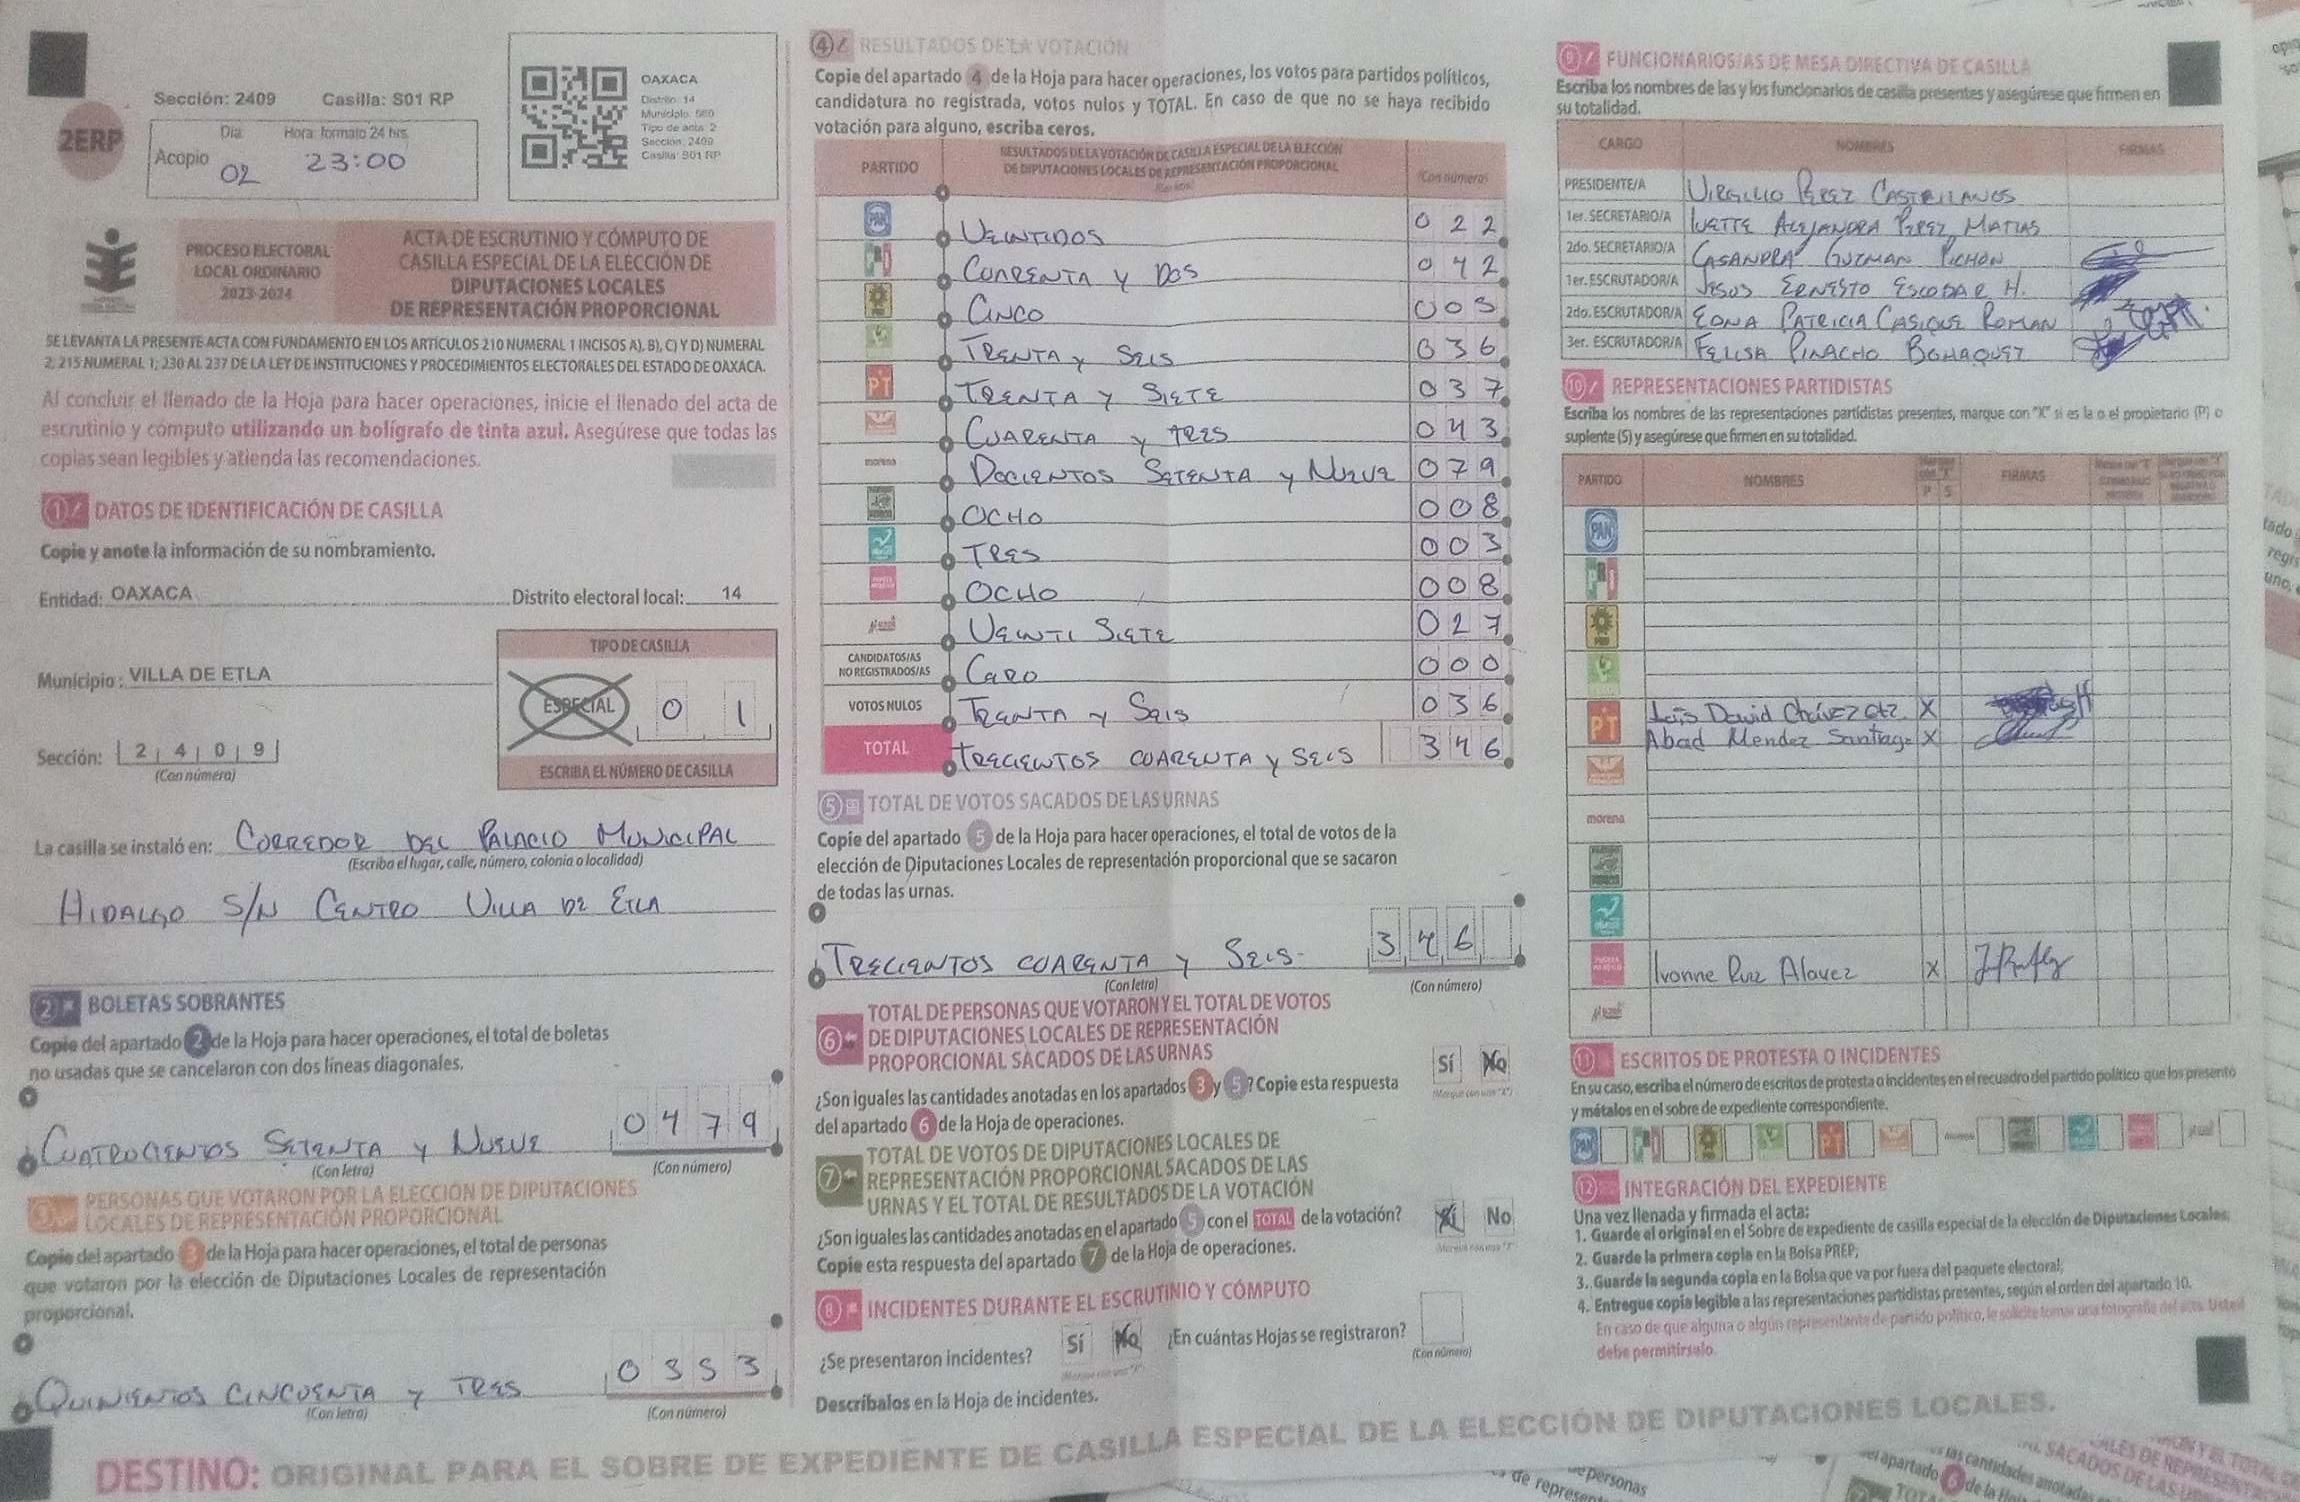 Sección: 2409 Casilla: S01 RP
2ERP
Día: Hora: formato 24 hrs.
Acopio 02 23:00
OAXACA
Distrito: 14
Municipio: 560
Tipo de acta: 2
Sección: 2409
Casilla: S01 RP
PROCESO ELECTORAL
LOCAL ORDINARIO
2023-2024
ACTA DE ESCRUTINIO Y CÓMPUTO DE
CASILLA ESPECIAL DE LA ELECCIÓN DE
DIPUTACIONES LOCALES
DE REPRESENTACIÓN PROPORCIONAL
SE LEVANTA LA PRESENTE ACTA CON FUNDAMENTO EN LOS ARTÍCULOS 210 NUMERAL 1 INCISOS A), B), C) Y D) NUMERAL
2; 215 NUMERAL 1; 230 AL 237 DE LA LEY DE INSTITUCIONES Y PROCEDIMIENTOS ELECTORALES DEL ESTADO DE OAXACA.
Al concluir el llenado de la Hoja para hacer operaciones, inicie el llenado del acta de
escrutinio y cómputo utilizando un bolígrafo de tinta azul. Asegúrese que todas las
copias sean legibles y atienda las recomendaciones.
1 DATOS DE IDENTIFICACIÓN DE CASILLA
Copie y anote la información de su nombramiento.
Entidad: OAXACA Distrito electoral local: 14
Municipio: VILLA DE ETLA
TIPO DE CASILLA
ESPECIAL 0 1
ESCRIBA EL NÚMERO DE CASILLA
Sección: 2 4 0 9
(Con número)
La casilla se instaló en: CORREDOR DEL PALACIO MUNICIPAL
(Escriba el lugar, calle, número, colonia o localidad)
HIDALGO S/N CENTRO VILLA DE ETLA
2 BOLETAS SOBRANTES
Copie del apartado 2 de la Hoja para hacer operaciones, el total de boletas
no usadas que se cancelaron con dos líneas diagonales.
CUATROCIENTOS SETENTA Y NUEVE 0479
(Con letra) (Con número)
3 PERSONAS QUE VOTARON POR LA ELECCIÓN DE DIPUTACIONES
LOCALES DE REPRESENTACIÓN PROPORCIONAL
Copie del apartado 3 de la Hoja para hacer operaciones, el total de personas
que votaron por la elección de Diputaciones Locales de representación
proporcional.
QUINIENTOS CINCUENTA Y TRES 0353
(Con letra) (Con número)
4 RESULTADOS DE LA VOTACIÓN
Copie del apartado 4 de la Hoja para hacer operaciones, los votos para partidos políticos,
candidatura no registrada, votos nulos y TOTAL. En caso de que no se haya recibido
votación para alguno, escriba ceros.
PARTIDO RESULTADOS DE LA VOTACIÓN DE CASILLA ESPECIAL DE LA ELECCIÓN
DE DIPUTACIONES LOCALES DE REPRESENTACIÓN PROPORCIONAL (Con número)
PAN VEINTIDOS 022
PRI CUARENTA Y DOS 042
CINCO 005
TRENTA Y SEIS 036
PT TRENTA Y SIETE 037
CUARENTA Y TRES 043
morena DOCIENTOS SETENTA Y NUEVE 079
OCHO 008
TRES 003
OCHO 008
VEINTI SIETE 027
CANDIDATOS/AS
NO REGISTRADOS/AS CERO 000
VOTOS NULOS TRENTA Y SEIS 036
TOTAL TRECIENTOS CUARENTA Y SEIS 346
5 TOTAL DE VOTOS SACADOS DE LAS URNAS
Copie del apartado 5 de la Hoja para hacer operaciones, el total de votos de la
elección de Diputaciones Locales de representación proporcional que se sacaron
de todas las urnas.
TRECIENTOS CUARENTA Y SEIS 346
(Con letra) (Con número)
6 TOTAL DE PERSONAS QUE VOTARON Y EL TOTAL DE VOTOS
DE DIPUTACIONES LOCALES DE REPRESENTACIÓN
PROPORCIONAL SACADOS DE LAS URNAS
Sí No
¿Son iguales las cantidades anotadas en los apartados 3 y 5? Copie esta respuesta
del apartado 6 de la Hoja de operaciones.
(Marque con una "X")
7 TOTAL DE VOTOS DE DIPUTACIONES LOCALES DE
REPRESENTACIÓN PROPORCIONAL SACADOS DE LAS
URNAS Y EL TOTAL DE RESULTADOS DE LA VOTACIÓN
¿Son iguales las cantidades anotadas en el apartado 5 con el TOTAL de la votación? Sí No
Copie esta respuesta del apartado 7 de la Hoja de operaciones.
8 INCIDENTES DURANTE EL ESCRUTINIO Y CÓMPUTO
¿Se presentaron incidentes? Sí No ¿En cuántas Hojas se registraron?
(Con número)
Descríbalos en la Hoja de incidentes.
9 FUNCIONARIOS/AS DE MESA DIRECTIVA DE CASILLA
Escriba los nombres de las y los funcionarios de casilla presentes y asegúrese que firmen en
su totalidad.
CARGO NOMBRES FIRMAS
PRESIDENTE/A VIRGILIO PEREZ CASTELLANOS
1er. SECRETARIO/A IVETTE ALEJANDRA PEREZ MATIAS
2do. SECRETARIO/A CASANDRA GUZMAN PICHON
1er. ESCRUTADOR/A JESUS ERNESTO ESCOBAR H.
2do. ESCRUTADOR/A EDNA PATRICIA CASIQUE ROMAN
3er. ESCRUTADOR/A FELISA PINACHO BOHAQUEZ
10 REPRESENTACIONES PARTIDISTAS
Escriba los nombres de las representaciones partidistas presentes, marque con "X" si es la o el propietario (P) o
suplente (S) y asegúrese que firmen en su totalidad.
PARTIDO NOMBRES P S FIRMAS
PAN
PRI
PT Luis David Chávez Otz. X
Abad Mendez Santiago X
morena
Ivonne Ruiz Alavez X
11 ESCRITOS DE PROTESTA O INCIDENTES
En su caso, escriba el número de escritos de protesta o incidentes en el recuadro del partido político que los presentó
y métalos en el sobre de expediente correspondiente.
12 INTEGRACIÓN DEL EXPEDIENTE
Una vez llenada y firmada el acta:
1. Guarde el original en el Sobre de expediente de casilla especial de la elección de Diputaciones Locales;
2. Guarde la primera copia en la Bolsa PREP;
3. Guarde la segunda copia en la Bolsa que va por fuera del paquete electoral;
4. Entregue copia legible a las representaciones partidistas presentes, según el orden del apartado 10.
En caso de que alguna o algún representante de partido político, le solicite tomar una fotografía del acta. Usted
debe permitírselo.
DESTINO: ORIGINAL PARA EL SOBRE DE EXPEDIENTE DE CASILLA ESPECIAL DE LA ELECCIÓN DE DIPUTACIONES LOCALES.